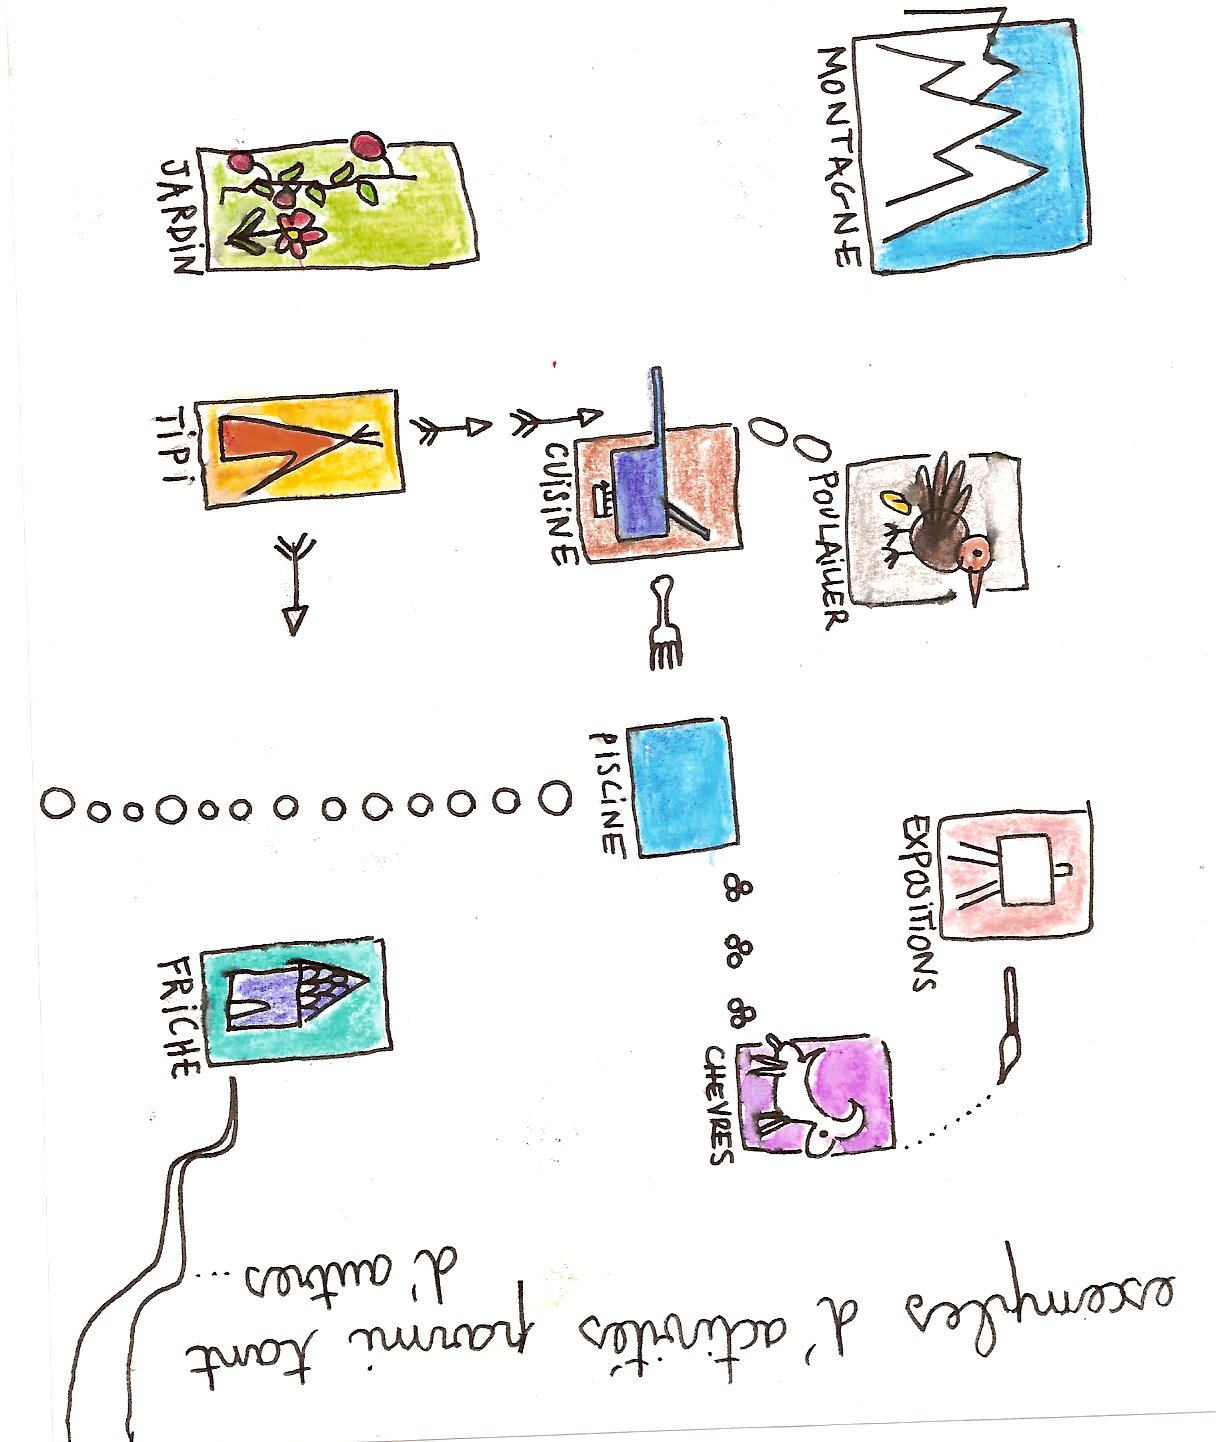 MONTAGNE
POULAILLER
EXPOSITIONS
CHEVRES
CUISINE
PISCINE
JARDIN
TIPI
FRICHE
exemples d'activités parmi tant
d'autres ...